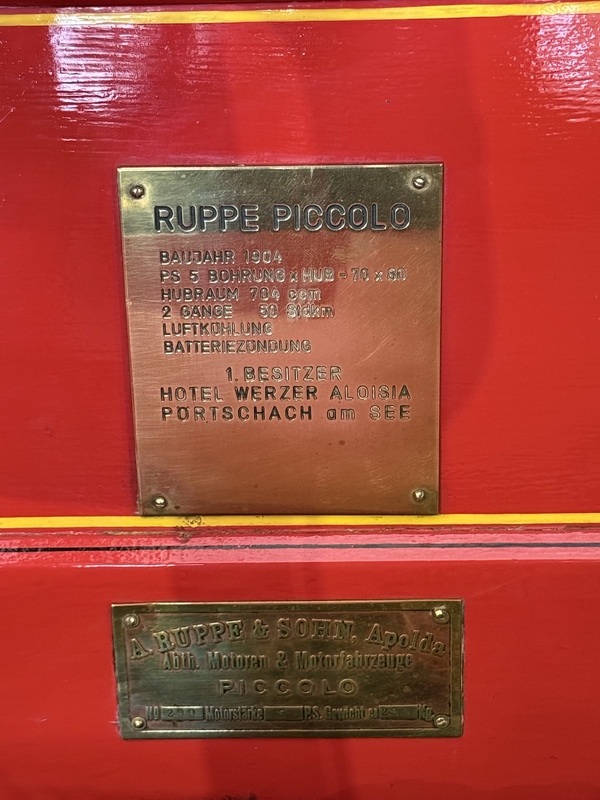 RUPPE PICCOLO
BAUJAHR 1904
PS 5 BOHRUNG x HUB - 70 x 80
HUBRAUM 704 ccm
2 GÄNGE 50 Stdkm
LUFTKÜHLUNG
BATTERIEZÜNDUNG
1. BESITZER
HOTEL WERZER ALOISIA
PÖRTSCHACH am SEE
A. RUPPE & SOHN, Apolda
Abth. Motoren & Motorfahrzeuge
PICCOLO
Motorstärke P.S. Gewicht Kg.